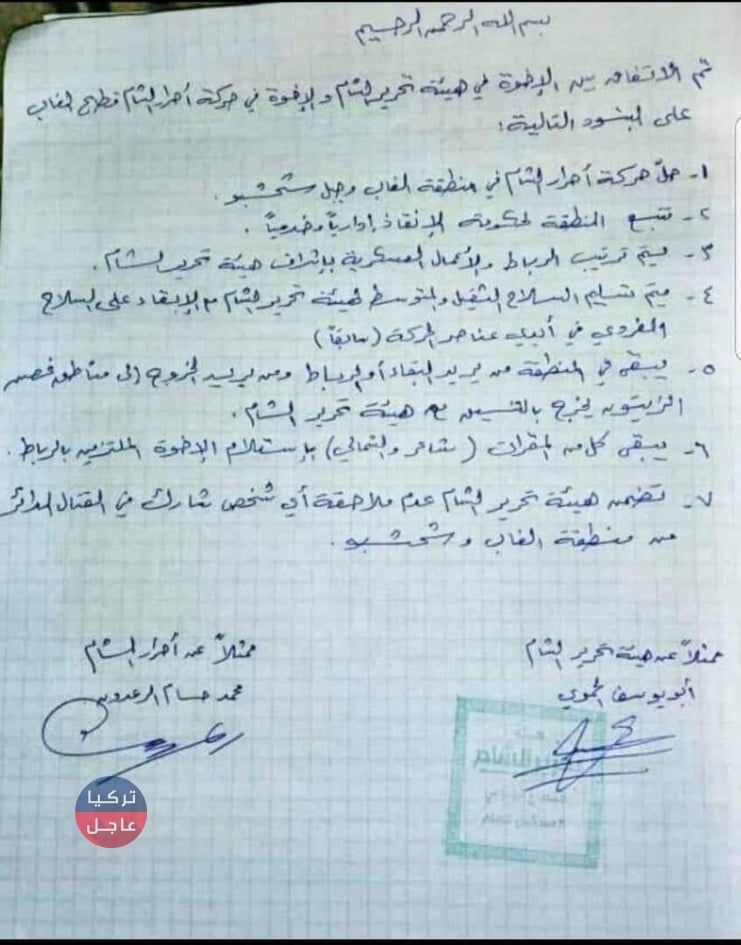 بسم الله الرحمن الرحيم
تم الاتفاق بين الإخوة في هيئة تحرير الشام والإخوة في حركة أحرار الشام قطاع الغاب
على البنود التالية:
١- حلّ حركة أحرار الشام في منطقة الغاب وجبل شحشبو.
٢- تتبع المنطقة لحكومة الإنقاذ إدارياً وخدمياً.
٣- يتم ترتيب الرباط والأعمال العسكرية بإشراف هيئة تحرير الشام.
٤- يتم تسليم السلاح الثقيل والمتوسط لهيئة تحرير الشام مع الإبقاء على السلاح
الفردي في أيدي عناصر الحركة (سابقاً)
٥- يبقى في المنطقة من يريد البقاء أو الرباط ومن يريد الخروج إلى مناطق غصن
الزيتون يخرج بالتنسيق مع هيئة تحرير الشام.
٦- يبقى كل من المقرات (شاعر والشمالي) بإستلام الإخوة الملتزمين بالرباط.
٧- تضمن هيئة تحرير الشام عدم ملاحقة أي شخص شارك في القتال الدائر
من منطقة الغاب وشحشبو.
ممثلاً عن هيئة تحرير الشام
أبو يوسف الحموي
ممثلاً عن أحرار الشام
محمد حسام
هيئة
تحرير الشام
تركيا
عاجل